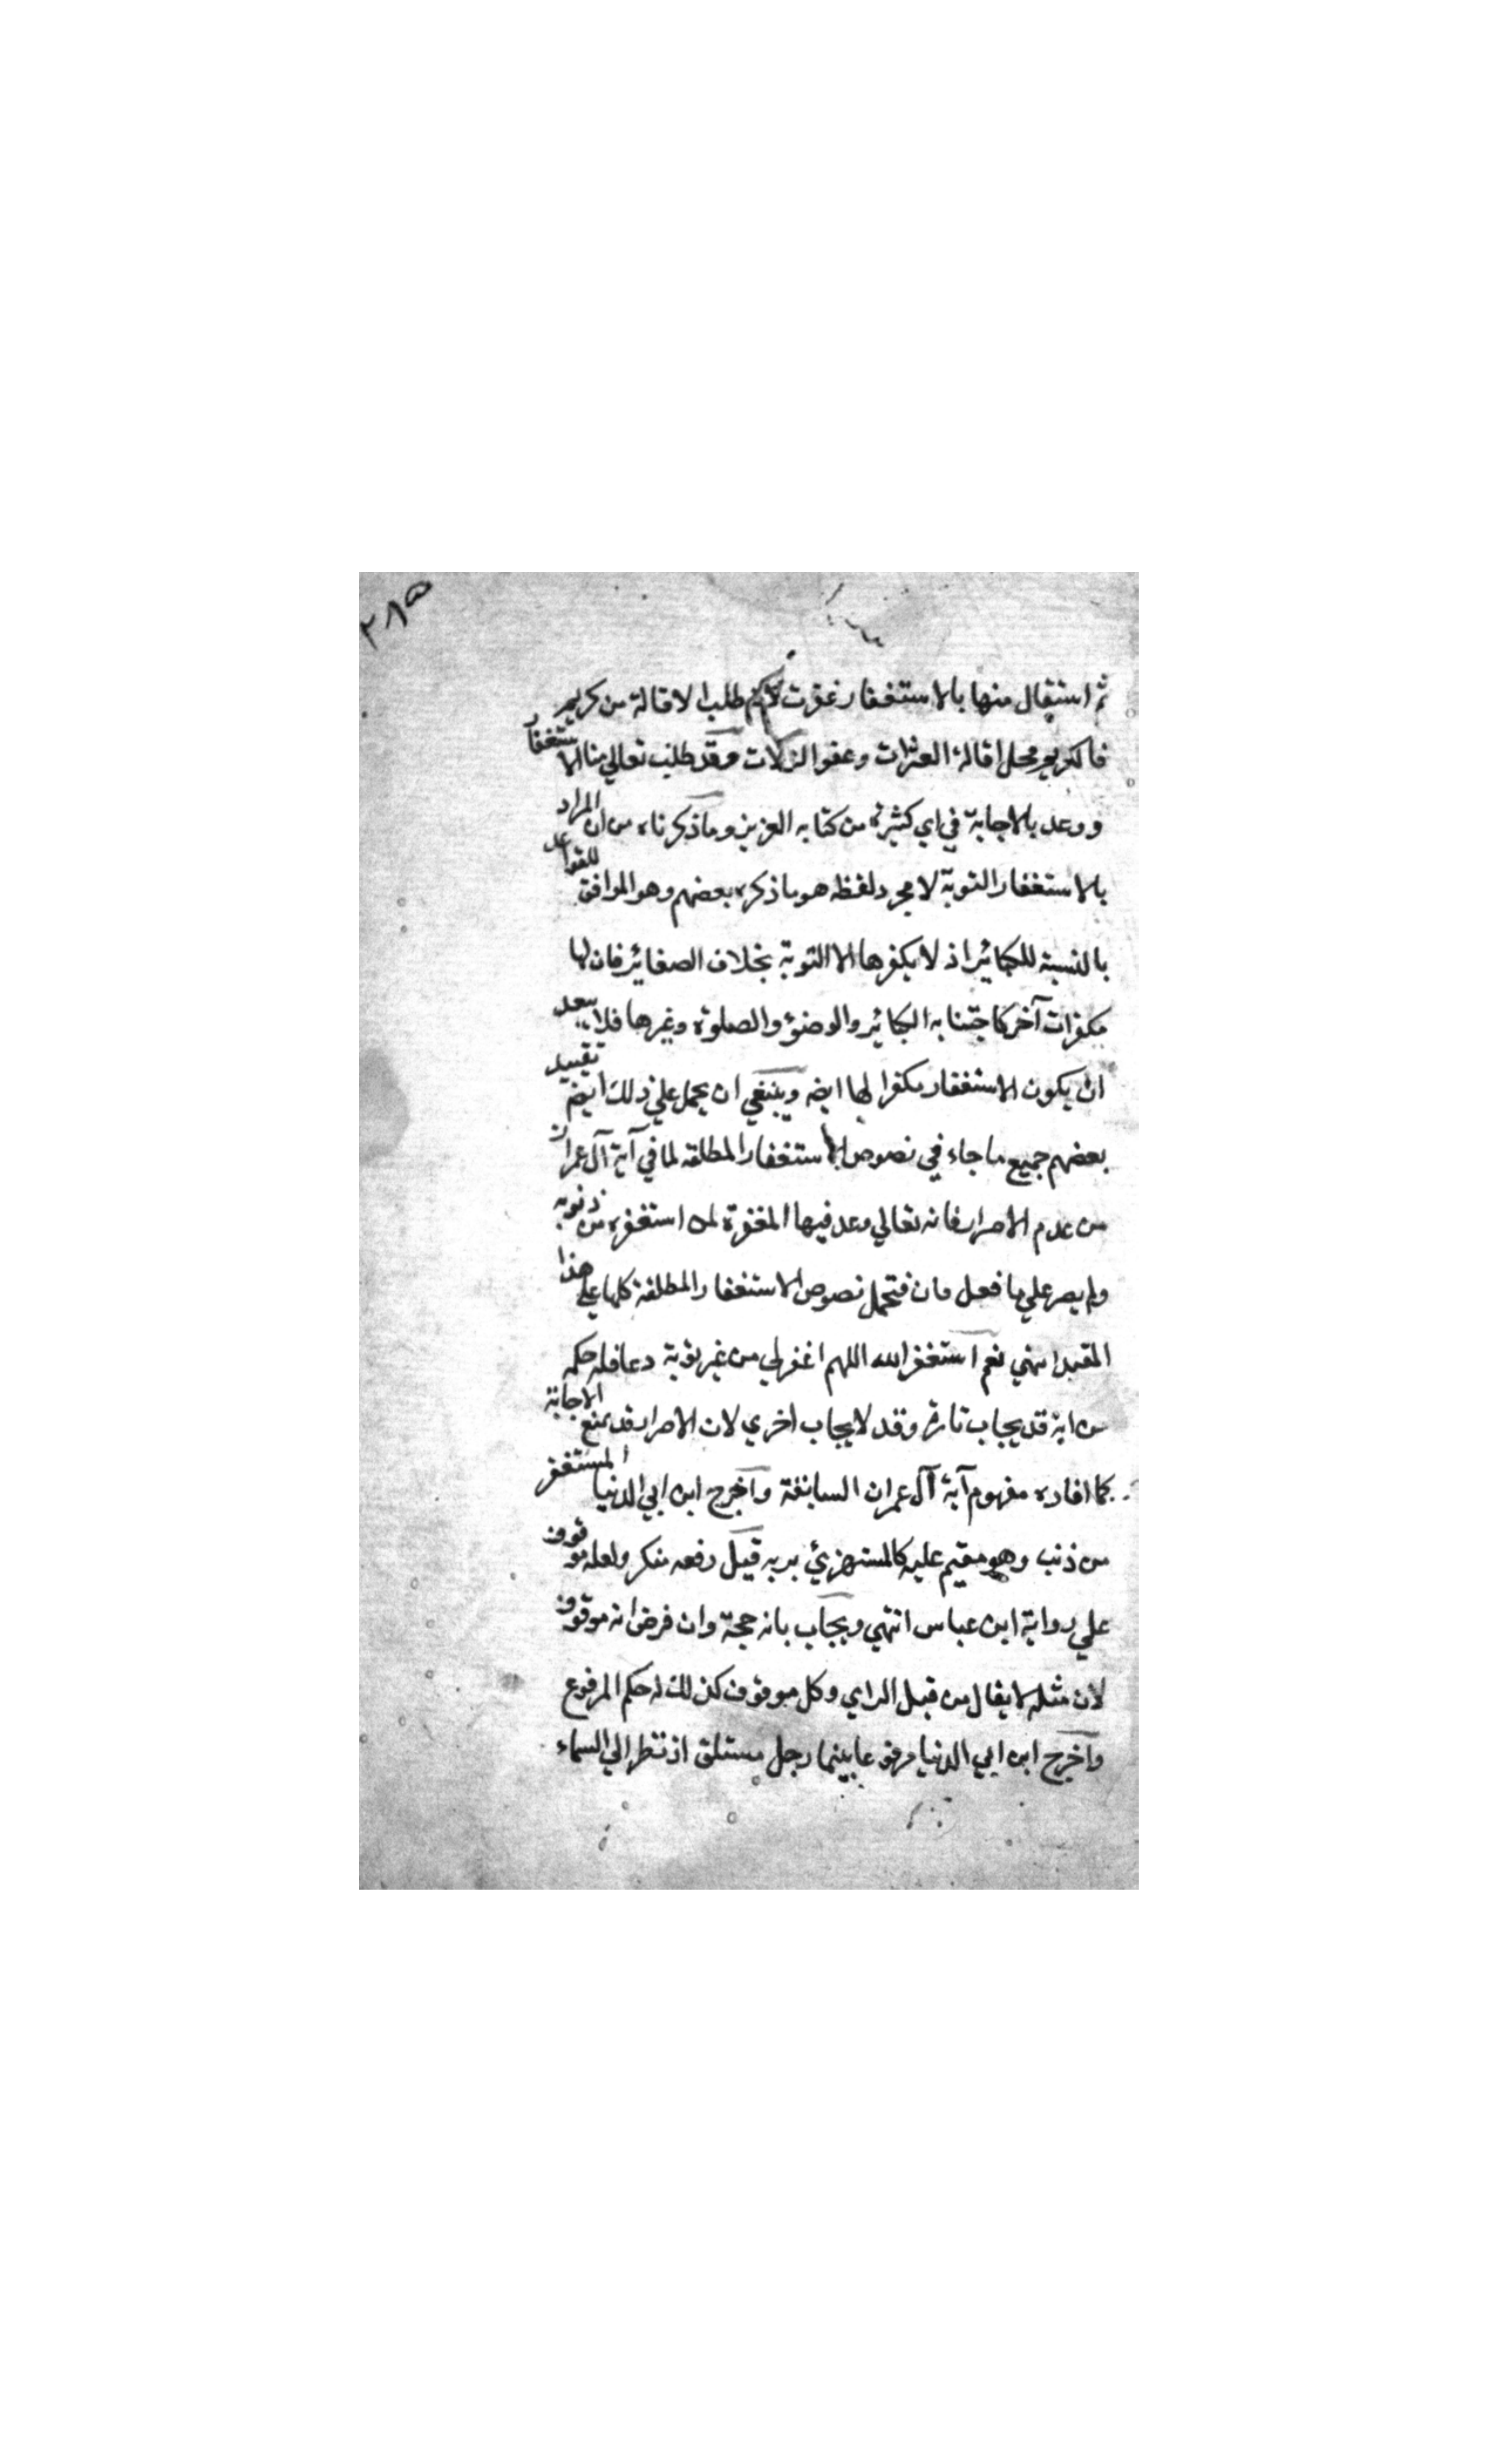 ٣٨٥
ثم استقال منها بالاستغفار غفرت لانه طلب الاقالة من كريم
فالكريم محل اقالة العثرات وعفو الزلات وقد طلب تعالي منا الاستغفار
ووعد بالاجابة في اي كثيرة من كتابه العزيز وما ذكرناه من ان المراد
بالاستغفار التوبة لا مجرد لفظه هو ما ذكره بعضهم وهو الموافق للقواعد
بالنسبة للكبائر اذ لا يكفرها الا التوبة بخلاف الصغائر فان لها
مكفرات آخر كاجتناب الكبائر والوضؤ والصلوة وغيرها فلا يبعد
ان يكون الاستغفار مكفرا لها ايضه وينبغي ان يحمل علي ذلك ايضه تقييد
بعضهم جميع ما جاء في نصوص الاستغفار المطلقه لما في آية آل عمران
من عدم الاصرار فانه تعالي وعد فيها المغفرة لمن استغفره من ذنوبه
ولم يصر علي ما فعل فان فتحمل نصوص الاستغفار المطلقة كلها علي هذا
المقيد انتهي نعم استغفر الله اللهم اغفر لي من غير توبة دعا فله حكمه
من انه قد يجاب تارة وقد لا يجاب اخري لان الاصرار قد يمنع الاجابة
كما افاده مفهوم آية آل عمران السابقة واخرج ابن ابي الدنيا المستغفر
من ذنب وهو مقيم عليه كالمستهزئ بربه قيل رفعه منكر ولعله موقوف
علي رواية ابن عباس انتهي ويجاب بانه حجة وان فرض انه موقوف
لان مثله لا يقال من قبل الراي وكل موقوف كذلك له حكم المرفوع
واخرج ابن ابي الدنيا مرفوعا بينما رجل مستلق اذ نظر الي السماء